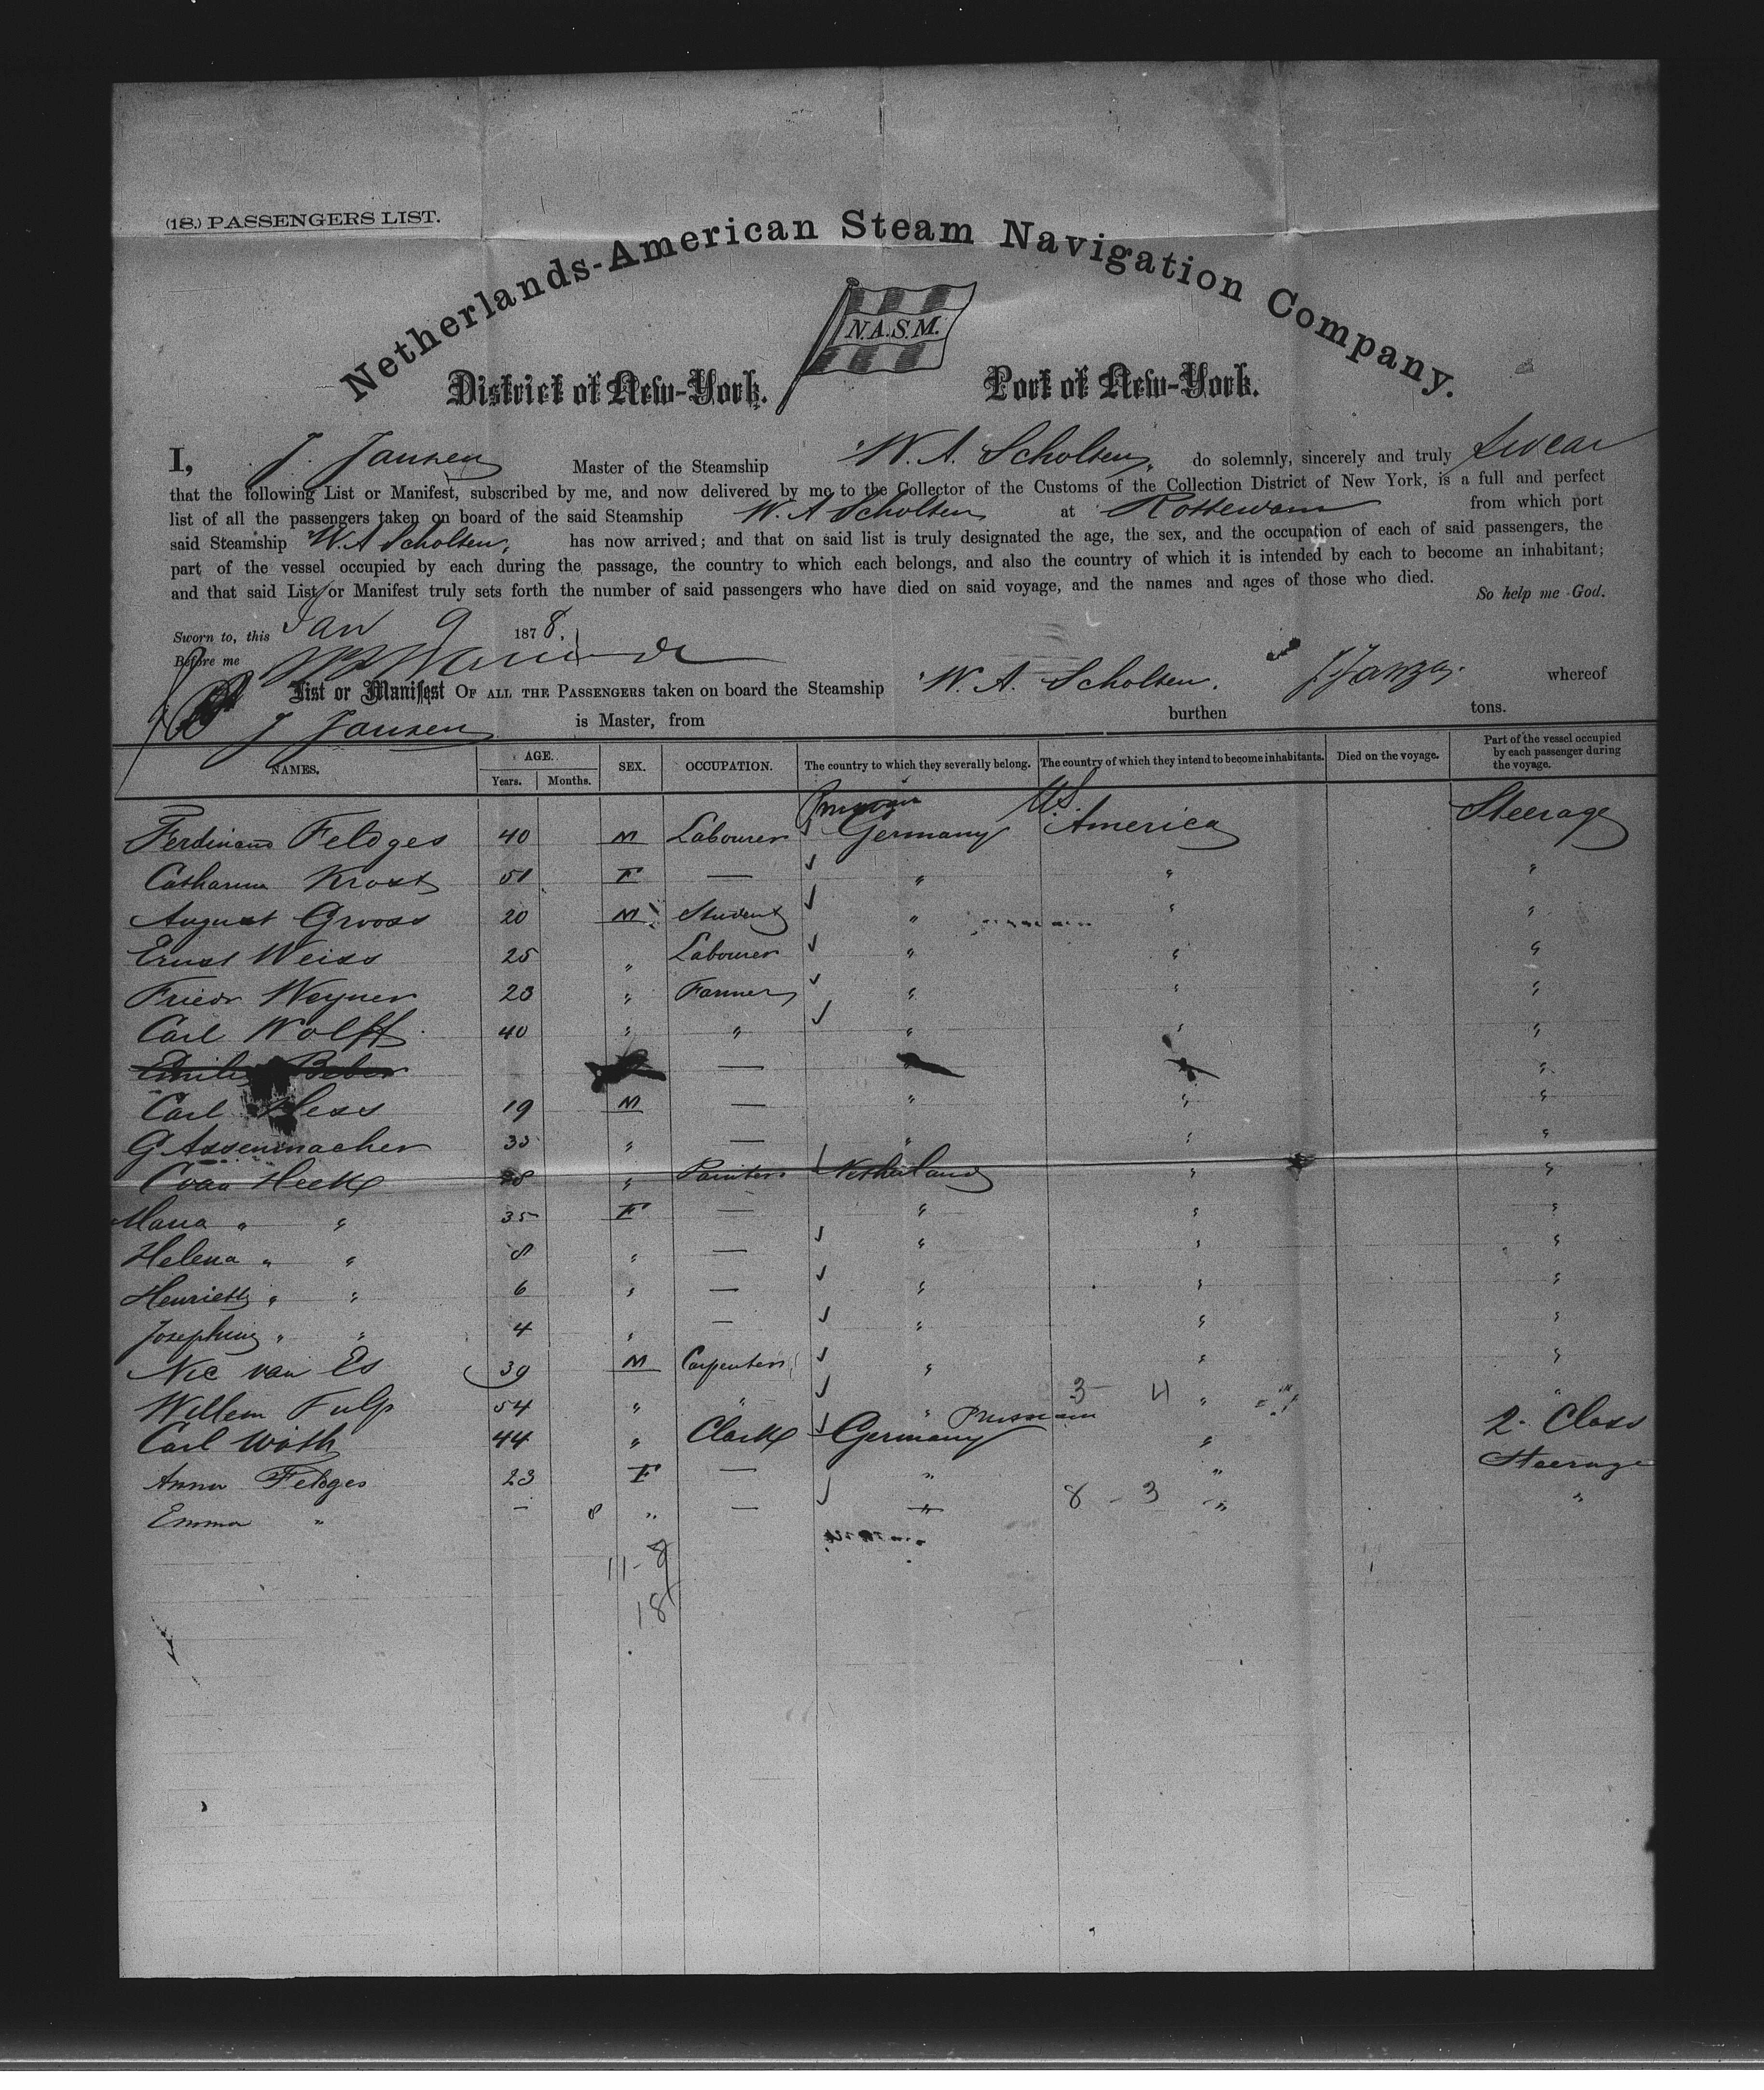 (18.) PASSENGERS LIST.
Netherlands-American Steam Navigation Company.
N.A.S.M.
District of New-York. Port of New-York.
I, J. Jansen Master of the Steamship W. A. Scholten, do solemnly, sincerely and truly swear
that the following List or Manifest, subscribed by me, and now delivered by me to the Collector of the Customs of the Collection District of New York, is a full and perfect
list of all the passengers taken on board of the said Steamship W. A Scholten at Rotterdam from which port
said Steamship W. A Scholten, has now arrived; and that on said list is truly designated the age, the sex, and the occupation of each of said passengers, the
part of the vessel occupied by each during the passage, the country to which each belongs, and also the country of which it is intended by each to become an inhabitant;
and that said List or Manifest truly sets forth the number of said passengers who have died on said voyage, and the names and ages of those who died. So help me God.
Sworn to, this Jan 9 1878.
Before me
List or Manifest OF ALL THE PASSENGERS taken on board the Steamship W. A. Scholten. whereof
J Jansen is Master, from burthen tons.
NAMES. AGE. Years. Months. SEX. OCCUPATION. The country to which they severally belong. The country of which they intend to become inhabitants. Died on the voyage. Part of the vessel occupied by each passenger during the voyage.
Prussia U.S.
Ferdinand Feldges 40 M Labourer Germany America Steerage
Catharina Krost 51 F — " " "
August Grooss 20 M Student " " "
Ernst Weiss 25 " Labourer " " "
Friedr Weyner 23 " Farmer " " "
Carl Wolff 40 " " " " "
— "
Carl Hess 19 M — " " "
G Assenmacher 33 " — " " "
C van Heck 38 " Painter Netherland " "
Maria " " 35 F — " " "
Helena " " 8 " — " " "
Henriette " " 6 " — " " "
Josephine " " 4 " — " " "
Nic van Es 39 M Carpenter " " "
Willem Fulp 54 " " " 3 4 " "
Prussian
Carl Woth 44 " Clark Germany " 2. Class
Anna Feldges 23 F — " " Steerage
Emma " - 8 " — " 8 - 3 " "
11-8
18